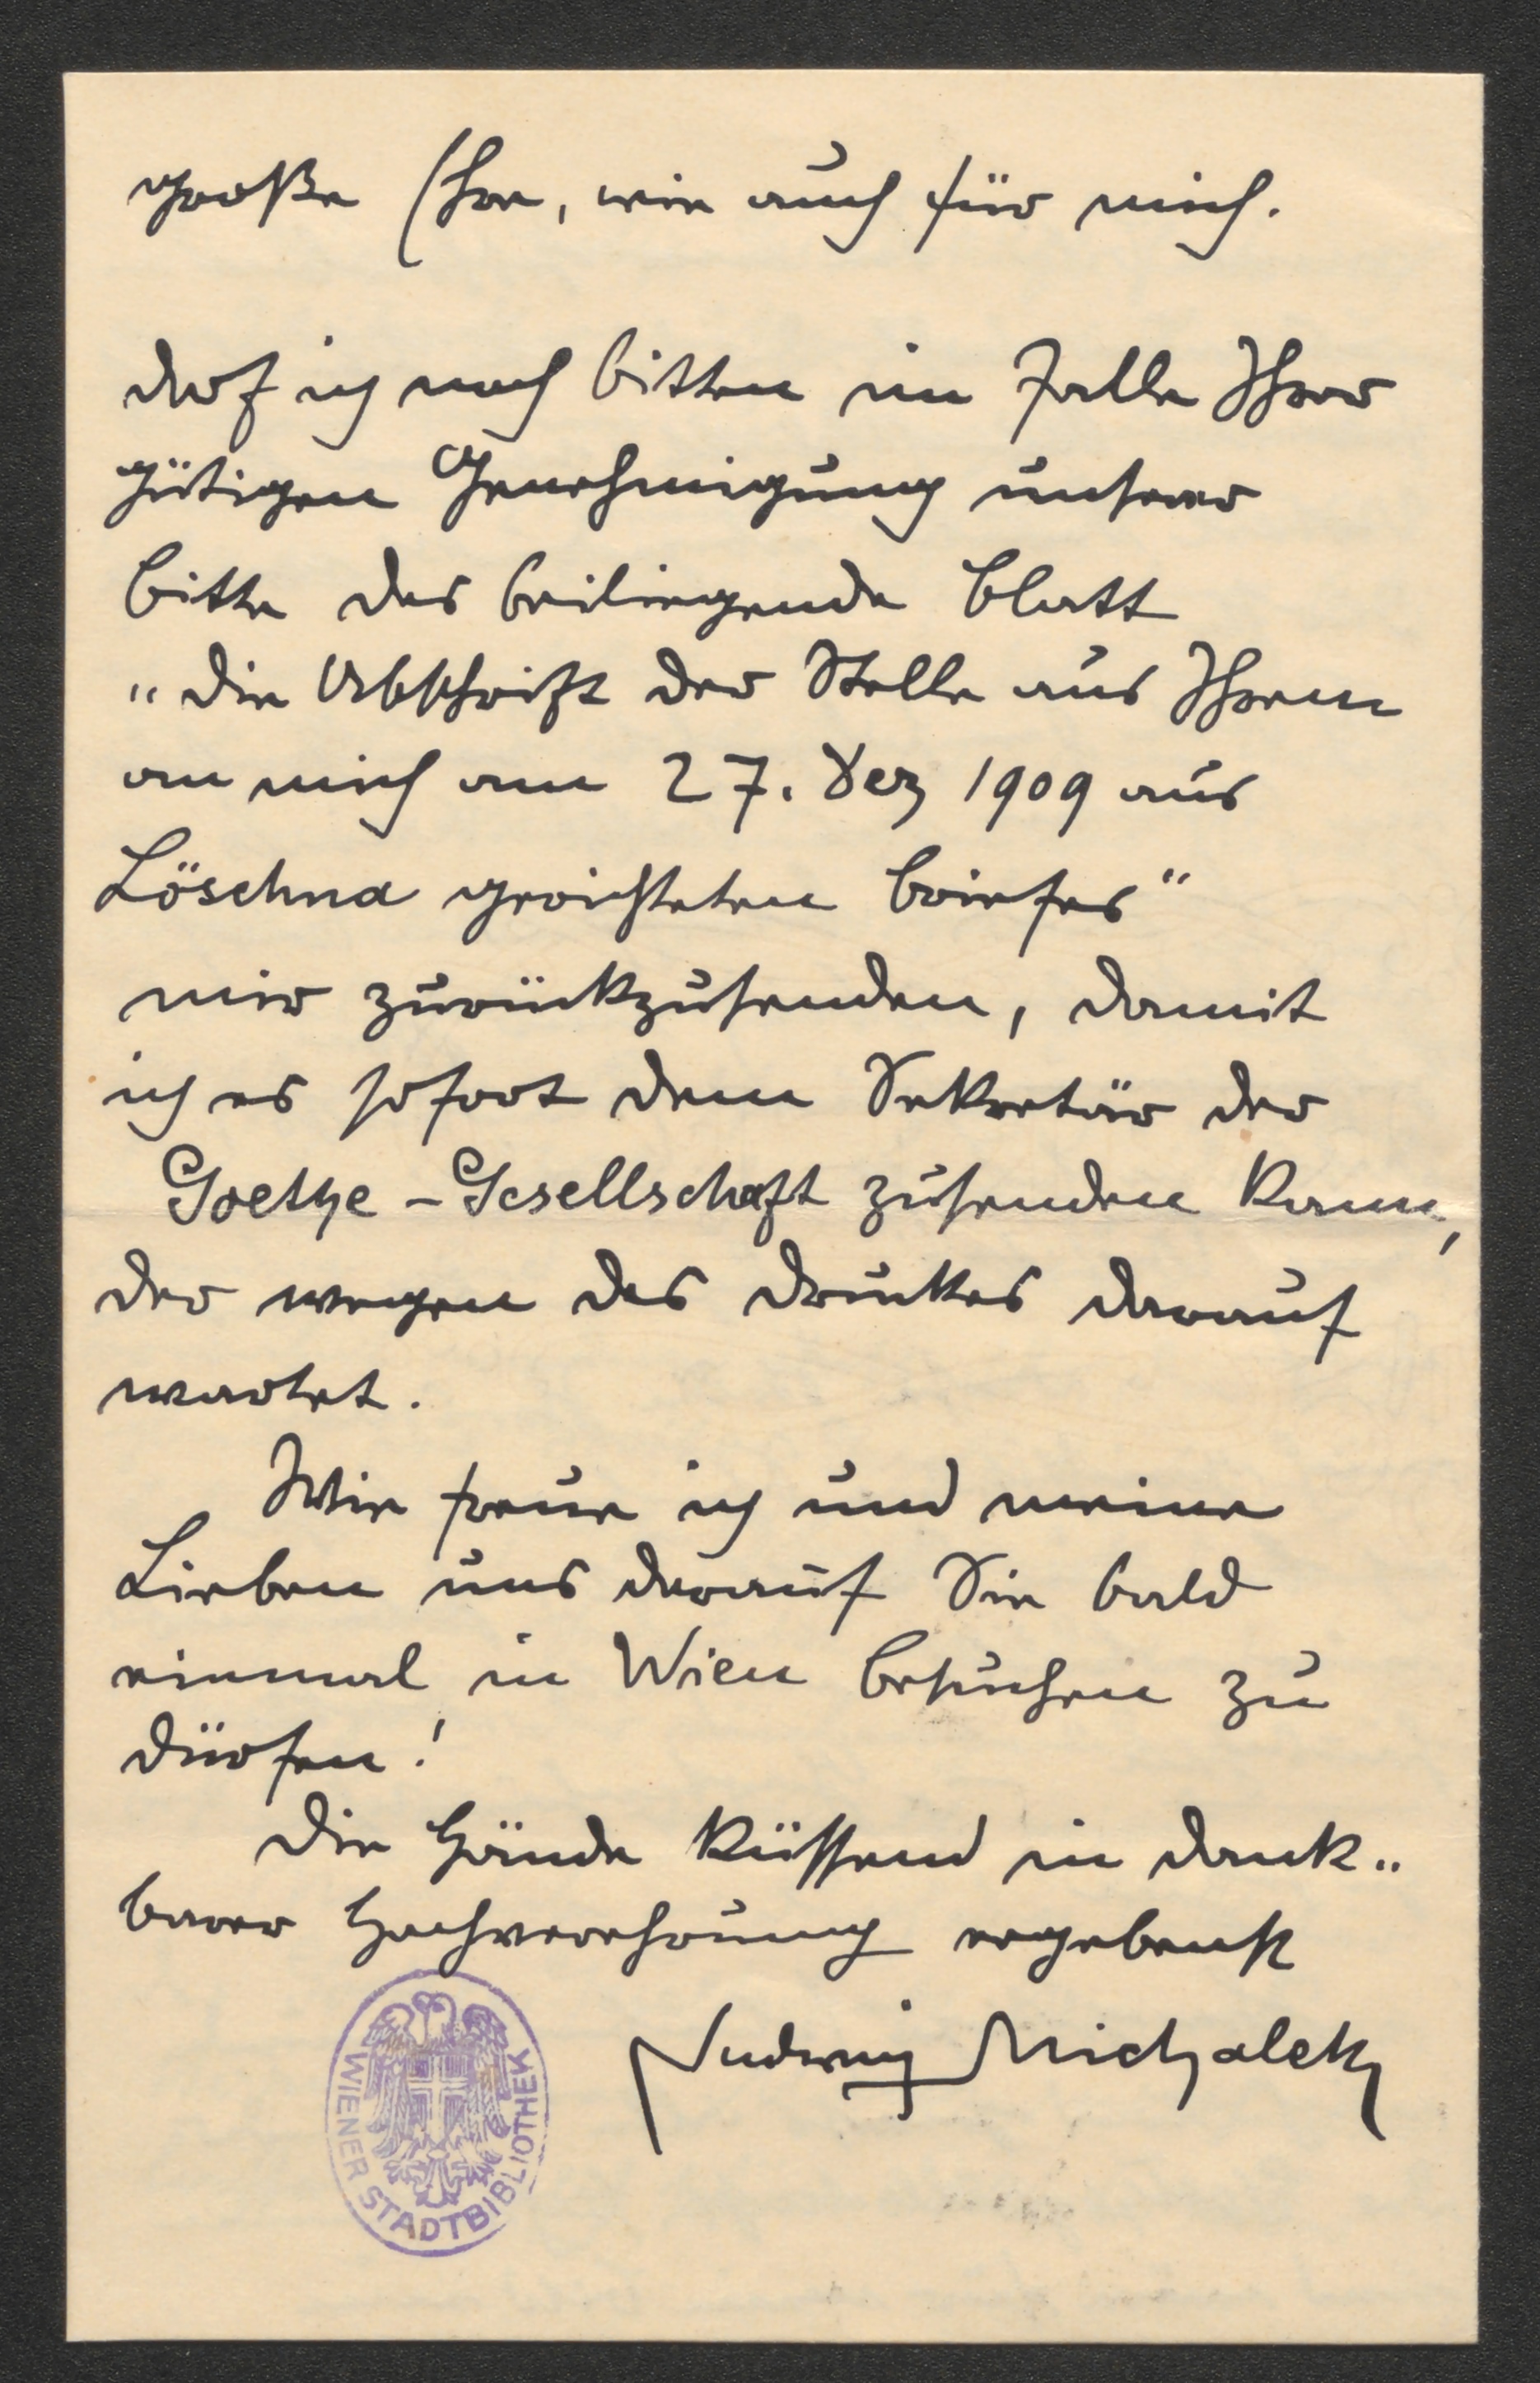 große Ehre, wie auch für mich.
Darf ich noch bitten im Falle Ihrer
gütigen Genehmigung unserer
Bitte das beiliegende Blatt
"Die Abschrift der Stelle aus Ihrem
an mich am 27. Dez 1909 aus
Löschna gerichteten Briefes"
mir zurückzusenden, damit
ich es sofort dem Sekretär der
Goethe-Gesellschaft zusenden kann,
der wegen des Druckes darauf
wartet.
Wie freue ich und meine
Lieben uns darauf Sie bald
einmal in Wien besuchen zu
dürfen!
Die Hände küssend in dank"
barer Hochverehrung ergebenst
Ludwig Michalek
WIENER STADTBIBLIOTHEK